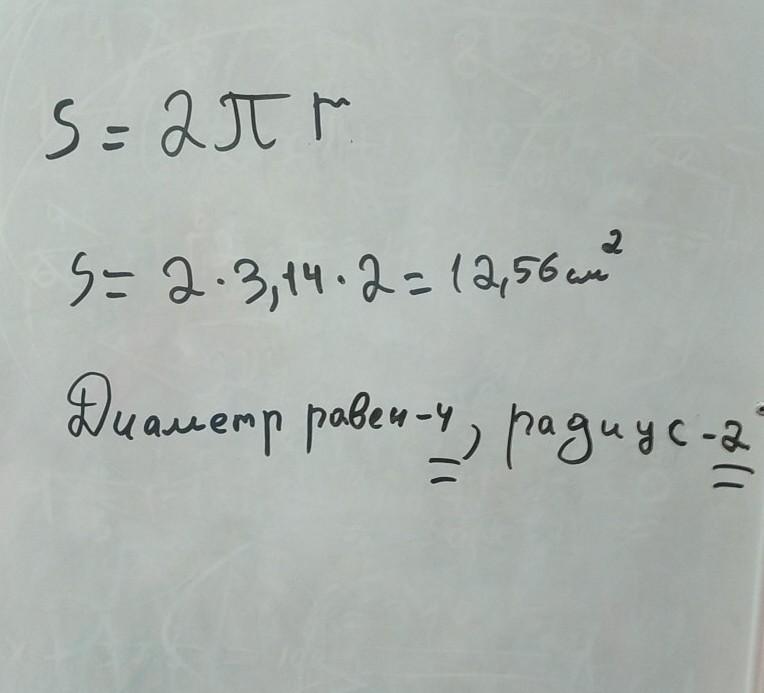 S = 2π r
S = 2 · 3,14 · 2 = 12,56 см²
Диаметр равен - 4, радиус - 2